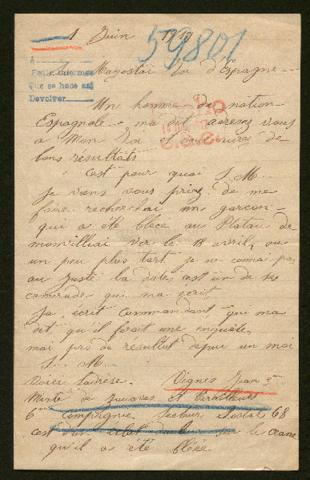 1 Juin 1917
59801
A
Pede informes
Que se hace así
Devolver
Magestai Roi d'Espagne
Un homme de nation
Espagnole ma dit adresez vous
a Mon Roi
bons resultats
C'est pour quoi S. M.
Je vans vous priez de me
faire rechercher un garcon
qui a été blece au Plateau de
vers le 18 avril, ou
un peu plus tard je ne conai pas
au juste la date c'est un de ses
camarade qui ma ecrit
Jai ecrit Commandant qui ma
dit qu'il ferait une enquete
mai pas de résultat depui un moi
S. M.
Voici ladrese. Vignes Jean
Mixte de zouaves et Tirailleurs
6me Compagnie Secteur Postal 68
c'est
qu'il a été blece